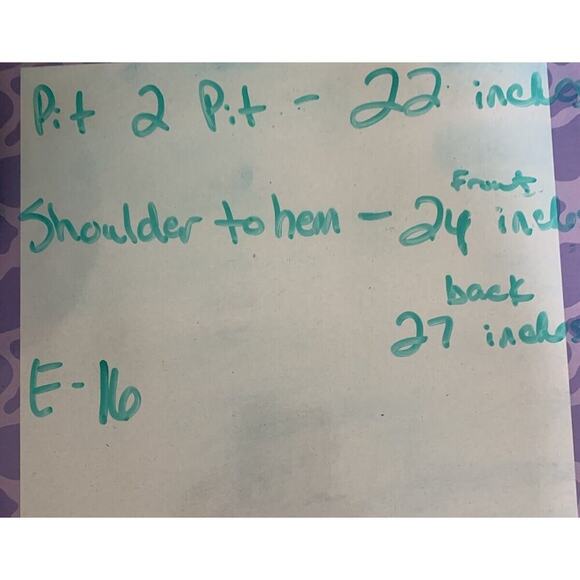 Pit 2 Pit - 22 inches
Shoulder to hem - 24 inches
Front
back
27 inches
E-16